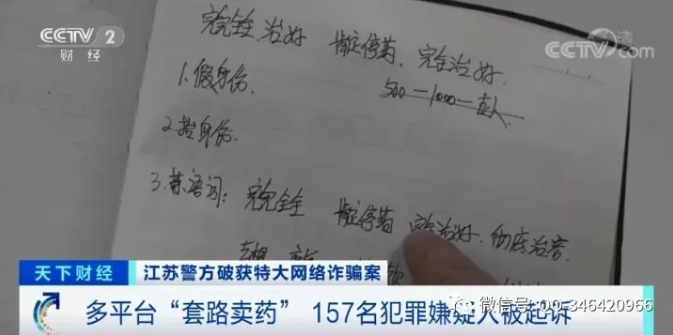 CCTV 2
财经
CCTV.com
完全治好 肯定停药、完全治好
1.假身份。
500—1000—
2.
3.禁语词：完全 肯定停药 完全治好、彻底治愈
天下财经 江苏警方破获特大网络诈骗案
多平台“套路卖药” 157名犯罪嫌疑人被起诉
微信号: qq-346420966